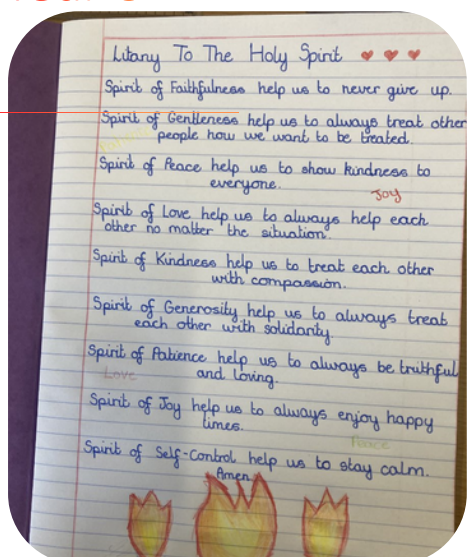 Litany To The Holy Spirit
Spirit of Faithfulness help us to never give up.
Spirit of Gentleness help us to always treat other
people how we want to be treated.
Spirit of Peace help us to show kindness to
everyone.
Joy
Spirit of Love help us to always help each
other no matter the situation.
Spirit of Kindness help us to treat each other
with compassion.
Spirit of Generosity help us to always treat
each other with solidarity.
Spirit of Patience help us to always be truthful
Love and loving.
Spirit of Joy help us to always enjoy happy
times.
Peace
Spirit of Self-Control help us to stay calm.
Amen